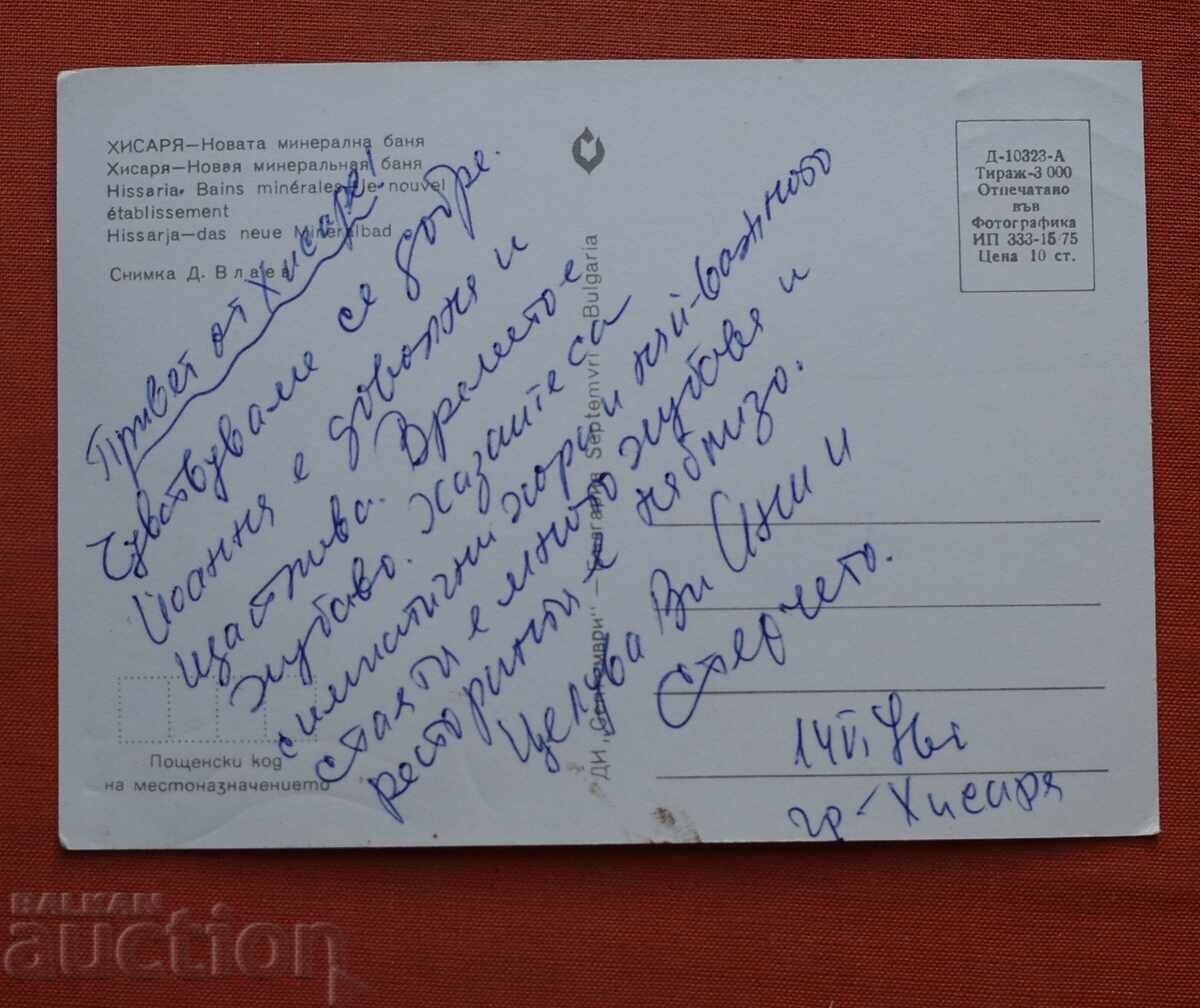 ХИСАРЯ—Новата минерална баня
Хисаря—Новая минеральная баня
Hissaria. Bains minérales, le nouvel
établissement
Hissarja—das neue Mineralbad
Снимка Д. Влаев
Д-10323-А
Тираж-3 000
Отпечатано
във
Фотографика
ИП 333-15/75
Цена 10 ст.
ДИ „Септември" — Fotografia Septemvri Bulgaria
Привет от Хисаря!
Чувствуваме се добре.
Йоанна е доволна и
щастлива. Времето е
хубаво. Хазаите са
симпатични хора и най-важното
стаята е много хубава и
ресторанта е наблизо.
Целува Ви Ани и
14 VI
гр. Хисаря
Пощенски код
на местоназначението
BALKAN
auction